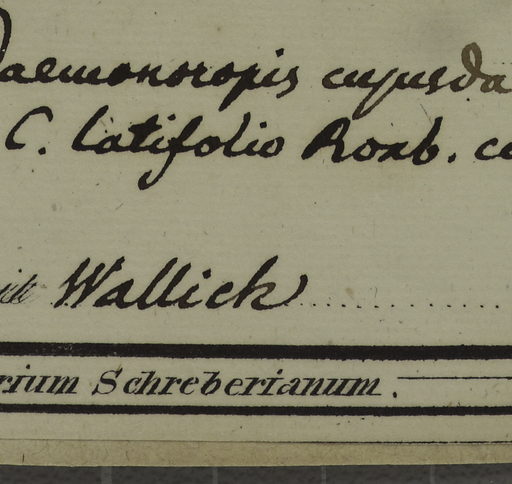 Daemonoropis cujusda
C. latifolio Roxb. co
Wallich
rium Schreberianum.